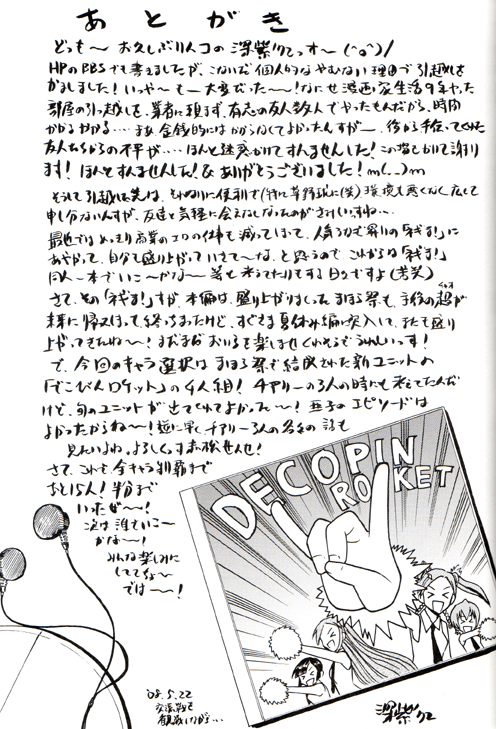 あとがき
どっも〜 お久しぶりんコの深紫でっす〜(^o^)/
HPのBBSでも書きましたが、こないだ個人的なやむない理由で引越しを
かましました！いっや〜も〜大変だった〜！なにせ漫画家生活9年やった
部屋の引っ越しを、業者に頼まず、有志の友人数人でやったもんだから、時間
かかるかかる…まあ金銭的にはかからなくてよかったんすが〜、後から手伝ってくれた
友人たちからの不平が…ほんと迷惑かけてすんませんした！この場をかりて謝り
ます！ほんとすんませんした！&ありがとうございました！m(_ _)m
そうして引越した先は、それなりに便利で(特に草野球に(笑)環境も悪くなく広くて
申し分ないんすが、友達と気軽に会えなくなったのがさみしいっすね…
最近ではめっきり商業のエロの仕事も減ってしまって、人気うなぎ昇りの「ネギま！」に
あやかって、自分も盛り上がっていきて〜な、と思うので、これからは「ネギま！」
同人一本でいこ〜かな〜 等も考えてたりする日々ですよ(苦笑)
さて、その「ネギま！」すが、本編は、盛り上がりまくったまほら祭も、予後の超が
未来に帰えっちまって終っちまったけど、すぐさま夏休み編に突入して、またも盛り
上がってきたね〜！まだまだおいらを楽しませてくれそうでうれしいっす！
で、今回のキャラ選択はまほら祭で結成された新ユニットの
「でこぴんロケット」の4人組！チアリーの3人の時にも考えてたんだ
けど、旬のユニットが出てくれてよかって〜！亜子のエピソードは
よかったからね〜！逆に早く、チアリー3人の各々の話も
見たいよね。よろしくっす赤松せんせ！
さて、これで全キャラ制覇まで
あと15人！半分まで
いったぜ〜！
次は誰でいこ〜
かな〜！
みんな楽しみに
しててな〜
では〜！
DECOPIN
ROCKET
'08.5.22
交流戦を
観戦しながら…
深紫